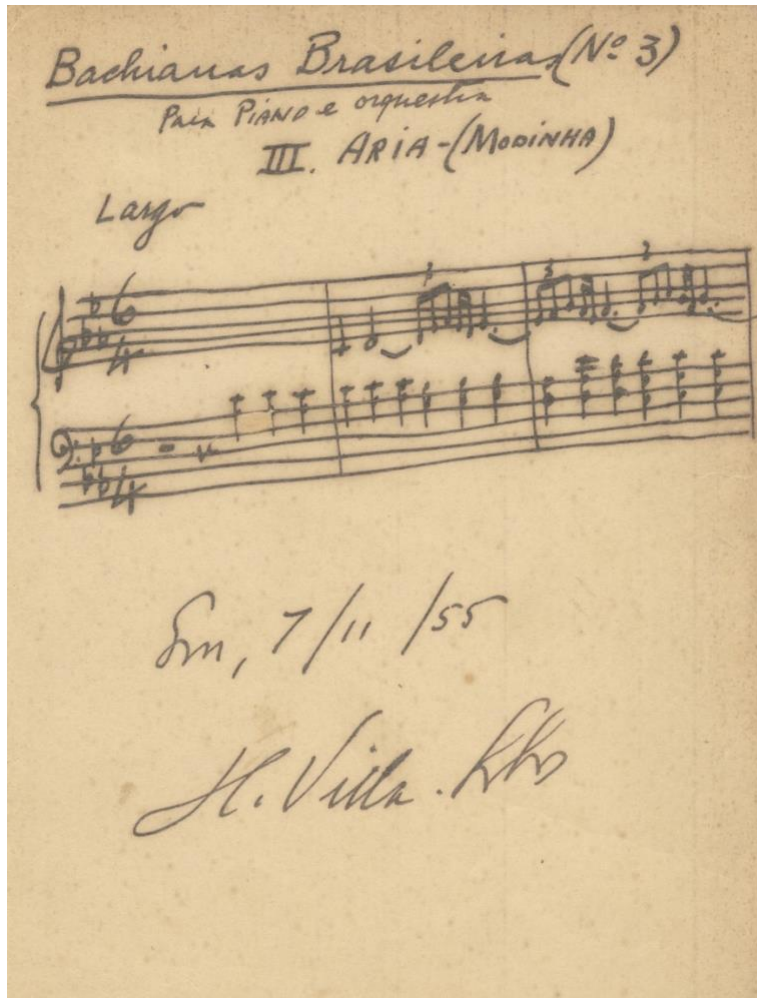 Bachianas Brasileiras (Nº 3)
Para PIANO e orquestra
III. ARIA-(MODINHA)
Largo
6
4
3
3
3
6
4
Em, 7/11/55
H. Villa-Lobos